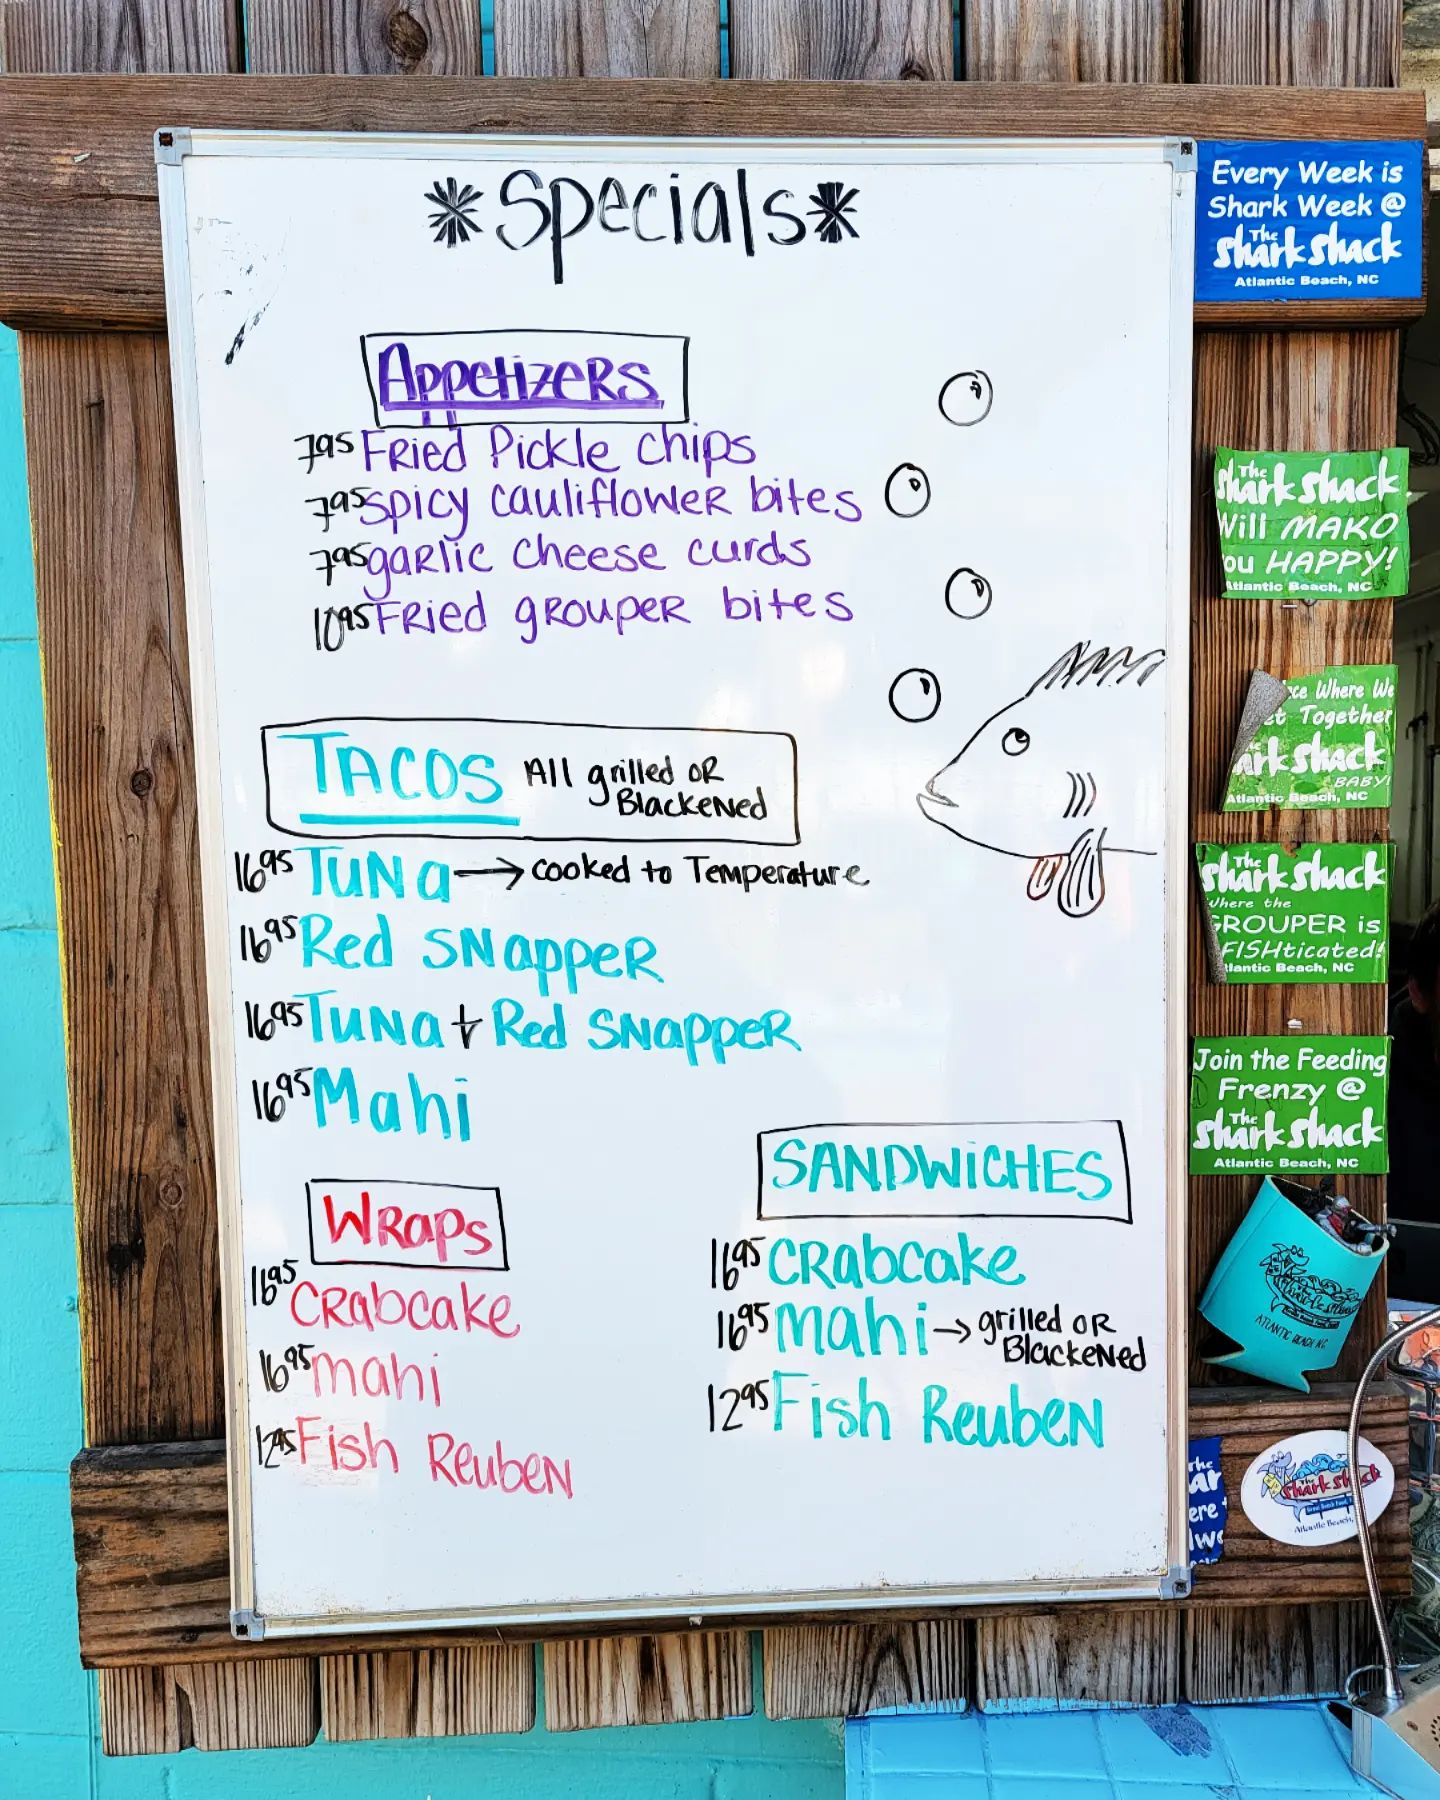 *Specials*
Appetizers
7.95 Fried Pickle chips
7.95 spicy cauliflower bites
7.95 garlic cheese curds
10.95 Fried grouper bites
TACOS All grilled or
Blackened
16.95 Tuna → cooked to Temperature
16.95 Red Snapper
16.95 Tuna + Red Snapper
16.95 Mahi
Wraps
16.95 Crabcake
16.95 mahi
12.95 Fish Reuben
SANDWiCHES
16.95 Crabcake
16.95 mahi → grilled or
Blackened
12.95 Fish Reuben
Every Week is
Shark Week @
The
Shark Shack
Atlantic Beach, NC
The
Shark Shack
Will MAKO
ou HAPPY!
Atlantic Beach, NC
ce Where We
et Together
ark Shack
BABY!
Atlantic Beach, NC
The
Shark Shack
Where the
GROUPER is
FISHticated!
tlantic Beach, NC
Join the Feeding
Frenzy @
The
Shark Shack
Atlantic Beach, NC
Shark Shack
ATLANTIC BEACH NC
The
Shark Shack
Atlantic Beach,